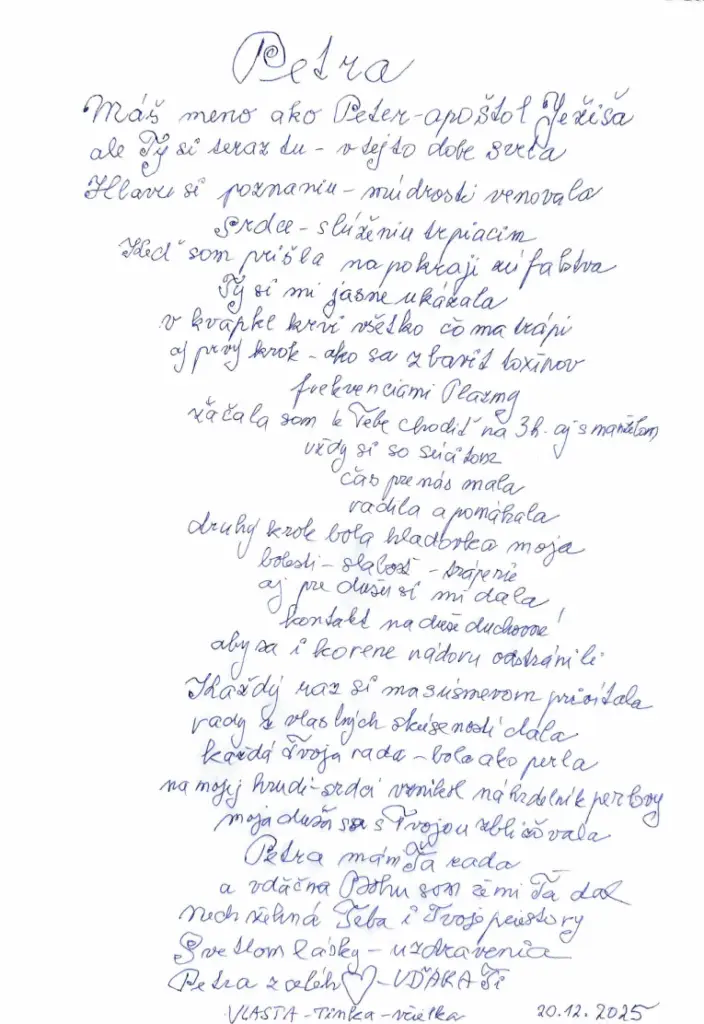 Petra
Máš meno ako Peter-apoštol Ježiša
ale Ty si teraz tu - v tejto dobe sveta
Hlavu si poznaniu - múdrosti venovala
srdce - slúženiu trpiacim
Keď som prišla na pokraji zúfalstva
Ty si mi jasne ukázala
v kvapke krvi všetko čo ma trápi
aj prvý krok - ako sa zbaviť toxínov
frekvenciami Plazmy
začala som k Tebe chodiť na 3h. aj s manželom
vždy si so súcitom
čas pre nás mala
radila a pomáhala
druhý krok bola hladovka moja
bolesti - slabosť - trápenie
aj pre dušu si mi dala
kontakt na duše duchovné!
aby sa i korene nádoru odstránili
Každý raz si ma s úsmevom privítala
rady z vlastných skúseností dala
každá Tvoja rada - bola ako perla
na mojej hrudi-srdci vznikol náhrdelník perlový
moja duša sa s Tvojou zbližovala
Petra mám Ťa rada
a vďačna Bohu som že mi Ťa dal
nech žehná Teba i Tvoje priestory
Svetlom lásky - uzdravenia
Petra z celého ♡ - VĎAKA Ti
VLASTA - Tinka - včielka 20.12.2025